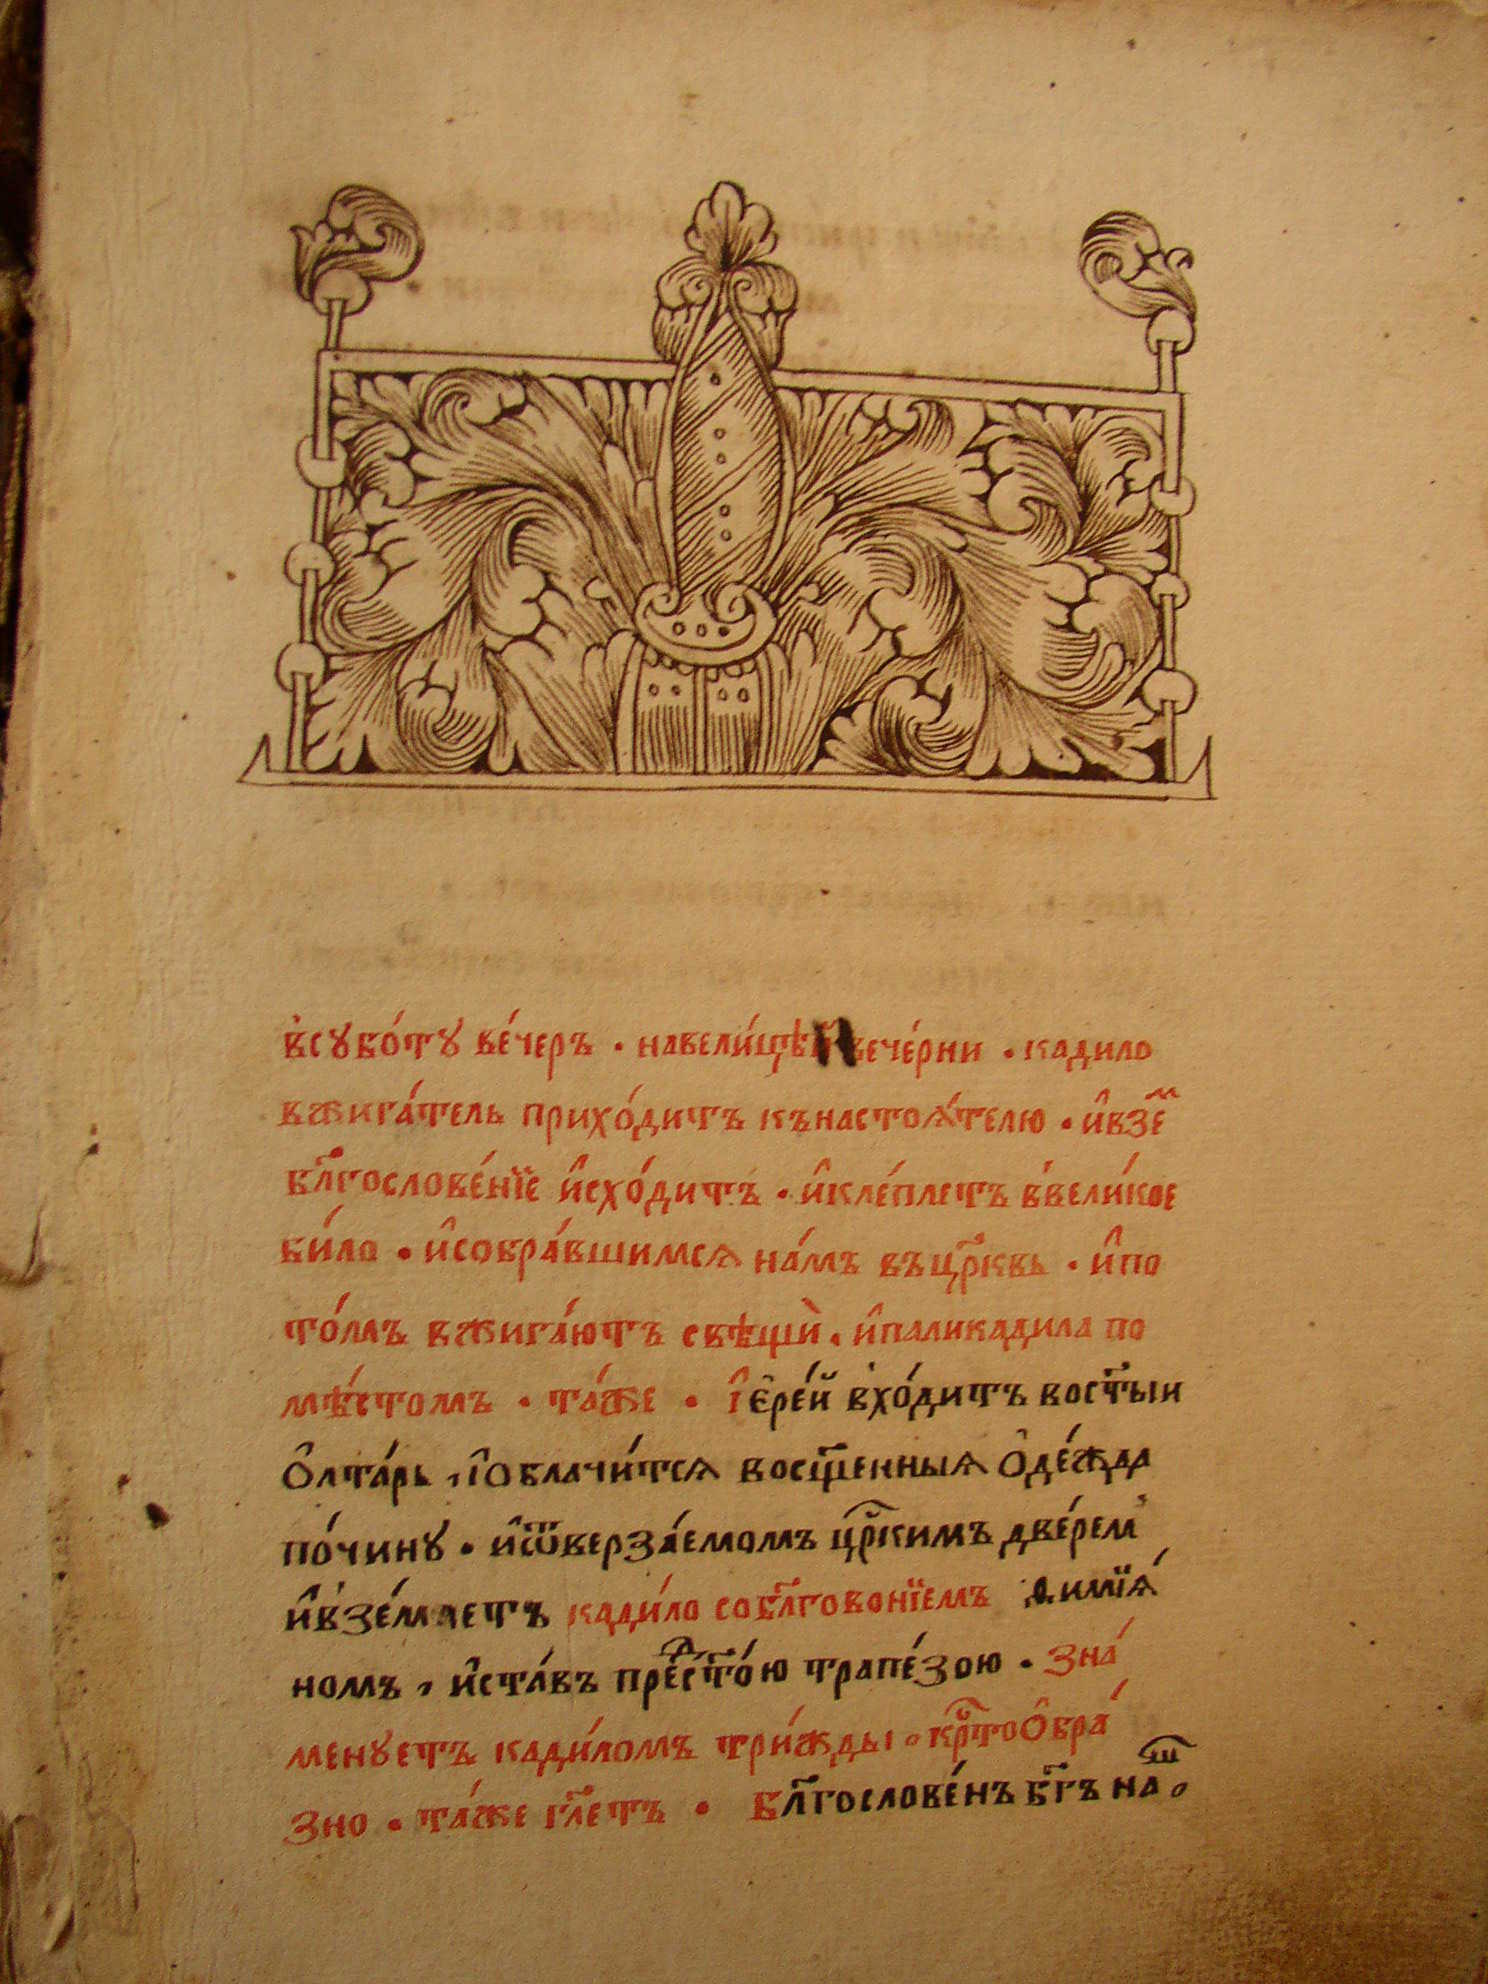 в̾сꙋбо́тꙋ ве́черъ · навели́цѣй вече́рни · кадило
вжига́тель прихо́дитъ кънастоѧ́телю · и҆взе́м
бл҃гослове́нїе и҆схо́дитъ · и҆кле́плетъ в̾вели́кое
би́ло · и҆собра́вшимсѧ на́мъ въцр҃квь · и҆по
то́мъ вжига́ютъ свѣщѝ · и҆паликадила по
мѣ́стомъ · та́же · і҆ере́й в̾хо́дитъ вост҃ыи
о҆лта́рь , і҆облачи́тсѧ восщ҃енныѧ о҆де́жда
по́чинꙋ · и҆ѿверза́емомъ цр҃кимъ две́рем
и҆в̾зе́млетъ кади́ло собл҃говонїемъ димїѧ́
номъ , и҆ста́въ предст҃о́ю трапе́зою · зна́
менꙋетъ кади́ломъ три́жды · кр҃тоо҆бра́
зно · та́же гл҃етъ · бл҃гослове́нъ бг҃ъ наш҃ ·